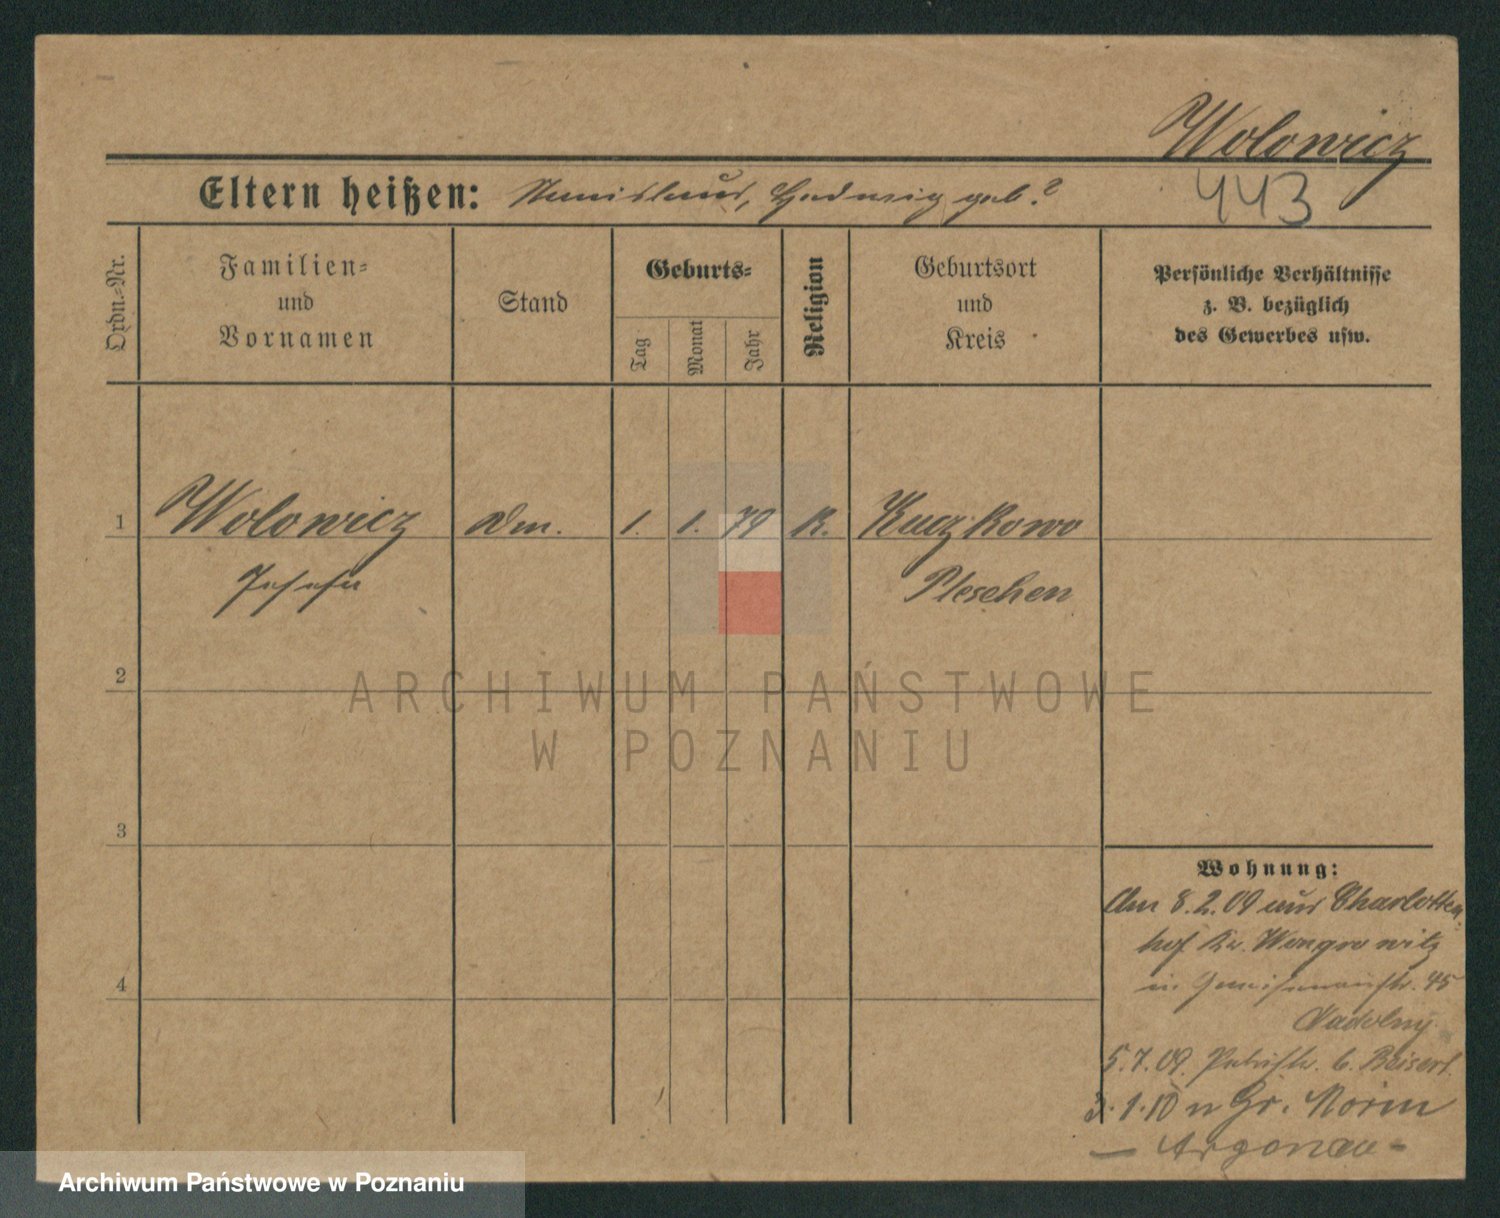 Wolowicz
Eltern heißen: Stanislaus, Hedwig geb. ?
443
Ordn.-Nr.
Familien-
und
Vornamen
Stand
Geburts-
Tag
Monat
Jahr
Religion
Geburtsort
und
Kreis
Persönliche Verhältnisse
z. B. bezüglich
des Gewerbes usw.
1 Wolowicz 1. 1. 79 K. Kuczkowo
Josefa Pleschen
2
3
4
Wohnung:
Am 8.2.09 aus Charlotten-
hof Kr. Wongrowitz
in Gneisenaustr. 45
Nadolny
5.7.09. Petristr. 6. Beisert
3.1.10 n Gr. Morin
— Argenau -
ARCHIWUM PAŃSTWOWE
W POZNANIU
Archiwum Państwowe w Poznaniu